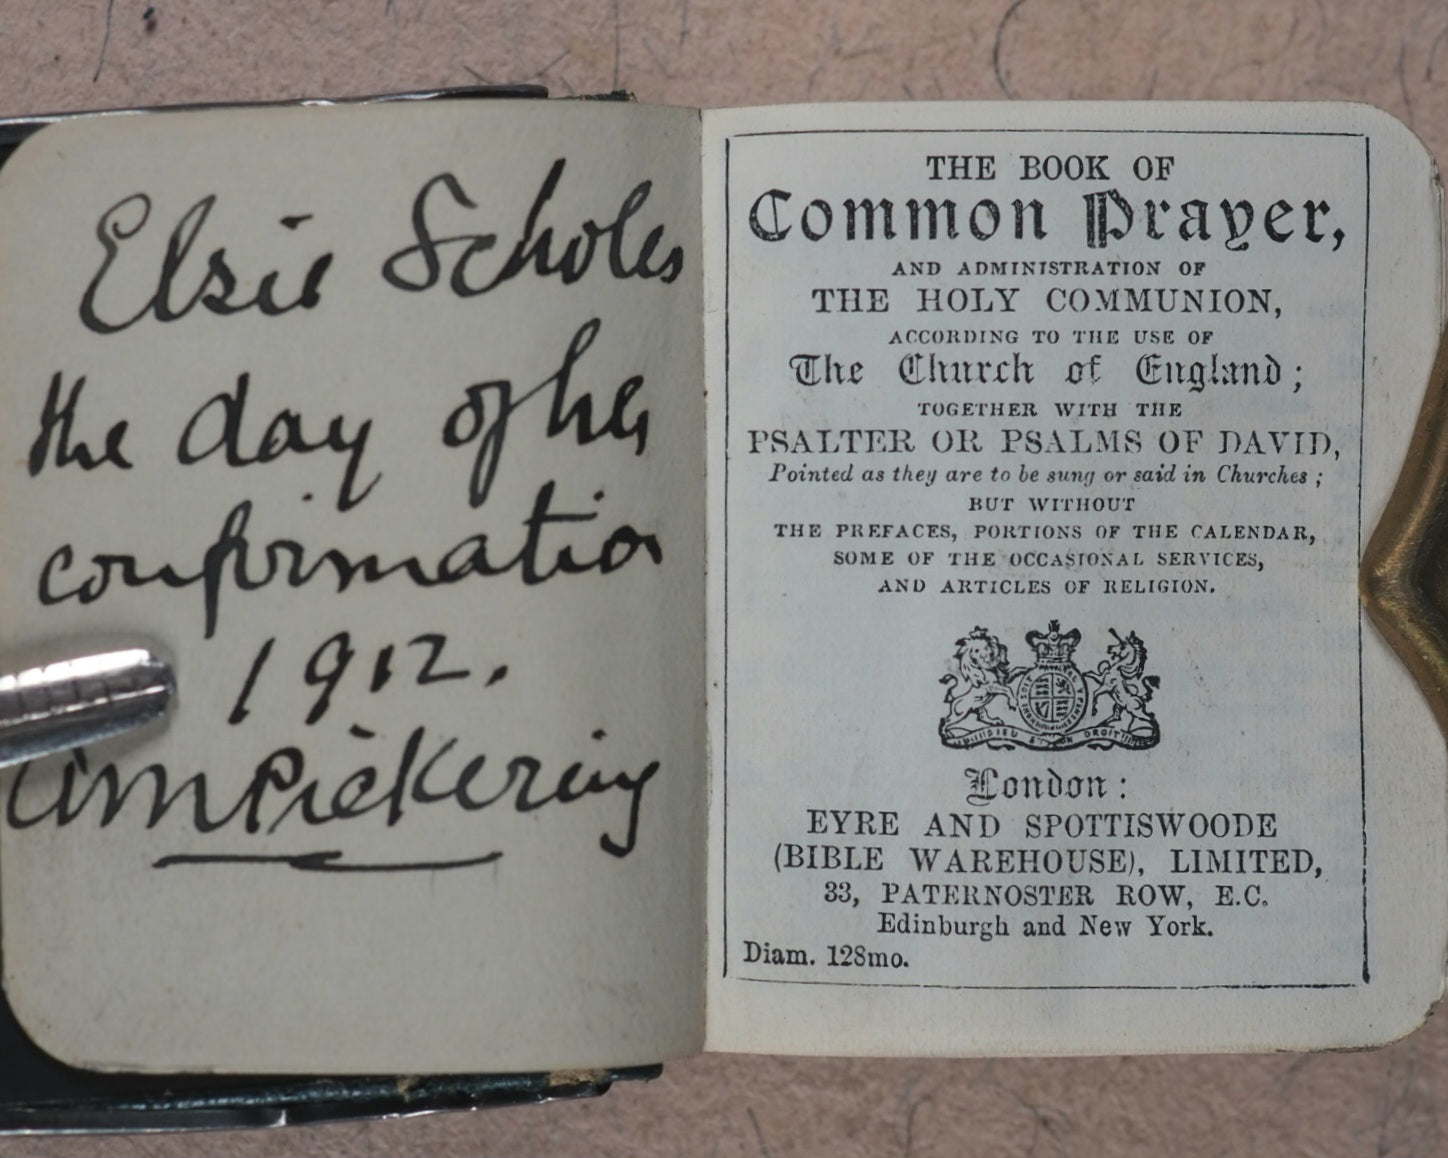 Elsie Scholes
the day of her
confirmation
1912.
AMPickering
THE BOOK OF
Common Prayer,
AND ADMINISTRATION OF
THE HOLY COMMUNION,
ACCORDING TO THE USE OF
The Church of England;
TOGETHER WITH THE
PSALTER OR PSALMS OF DAVID,
Pointed as they are to be sung or said in Churches;
BUT WITHOUT
THE PREFACES, PORTIONS OF THE CALENDAR,
SOME OF THE OCCASIONAL SERVICES,
AND ARTICLES OF RELIGION.
DIEU ET MON DROIT
London:
EYRE AND SPOTTISWOODE
(BIBLE WAREHOUSE), LIMITED,
33, PATERNOSTER ROW, E.C.
Edinburgh and New York.
Diam. 128mo.